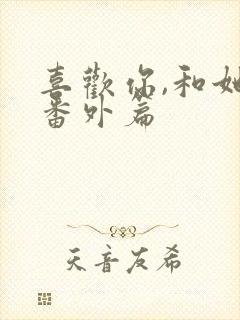 喜歡你,和她
番外篇
天音友希